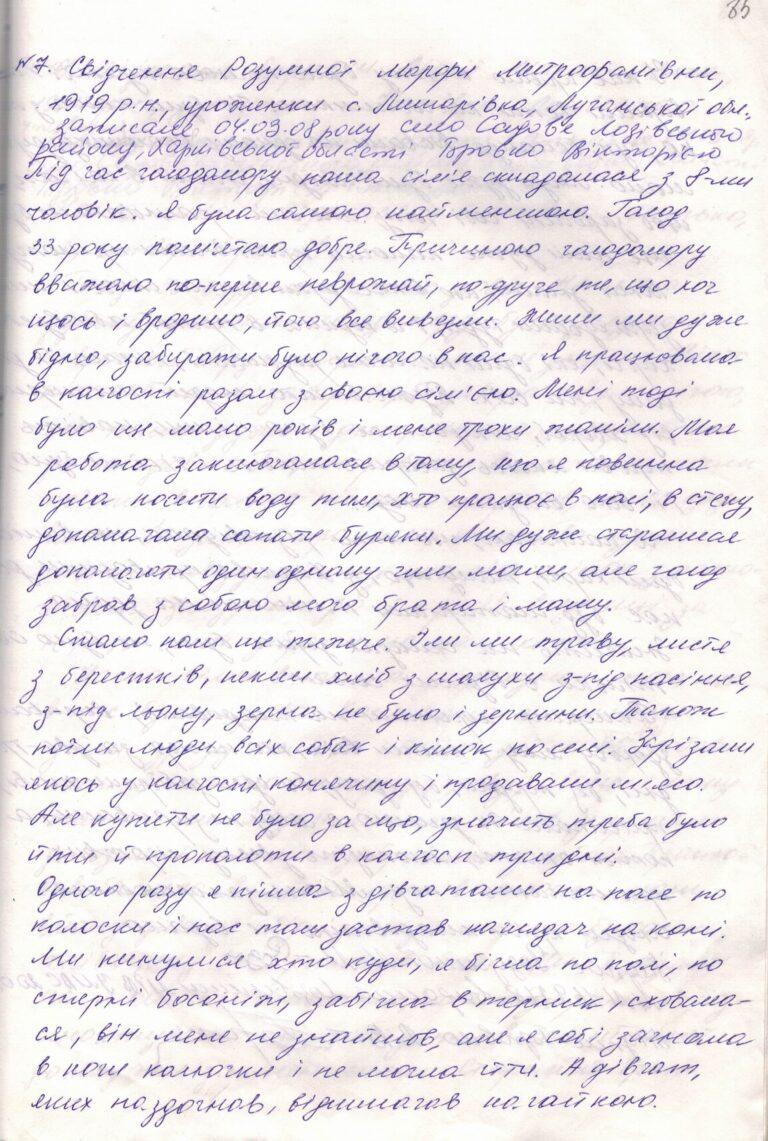 85
№7. Свідчення Розумної Марфи Митрофанівни,
1919 р.н., уроженки с. Лишарівка, Луганської обл.,
записане 04.03.08 року село Садове Лозівського
району, Харківської області Бровко Вікторією
Під час голодомору наша сім'я складалася з 8-ми
чоловік. Я була самою найменшою. Голод
33 року памятаю добре. Причиною голодомору
вважаю по-перше неврожай, по-друге те, що хоч
щось і вродило, його все вивезли. Жили ми дуже
бідно, забирати було нічого в нас. Я працювала
в колгоспі разом з своєю сім'єю. Мені тоді
було ще мало років і мене трохи жаліли. Моя
робота заключалася в тому, що я повинна
була носити воду тим, хто працює в полі, в степу,
допомагала сапати буряки. Ми дуже старалися
допомагати один одному чим могли, але голод
забрав з собою мого брата і маму.
Стало нам ще тяжче. Їли ми траву, листя
з берестків, пекли хліб з шалухи з-під насіння,
з-під льону, зерна не було і зернини. Також
поїли люди всіх собак і кішок на селі. Зарізали
якось у колгоспі конячину і продавали м'ясо.
Але купити не було за що, значить треба було
йти й прополоти в колгосп три дні.
Одного разу я пішла з дівчатами на поле по
колоски і нас там застав наглядач на коні.
Ми кинулися хто куди, я бігла по полі, по
стерні босоніж, забігла в терник, сховала-
ся, він мене не знайшов, але я собі загнала
в ноги колючки і не могла йти. А дівчат,
яких наздогнав, відшмагав нагайкою.